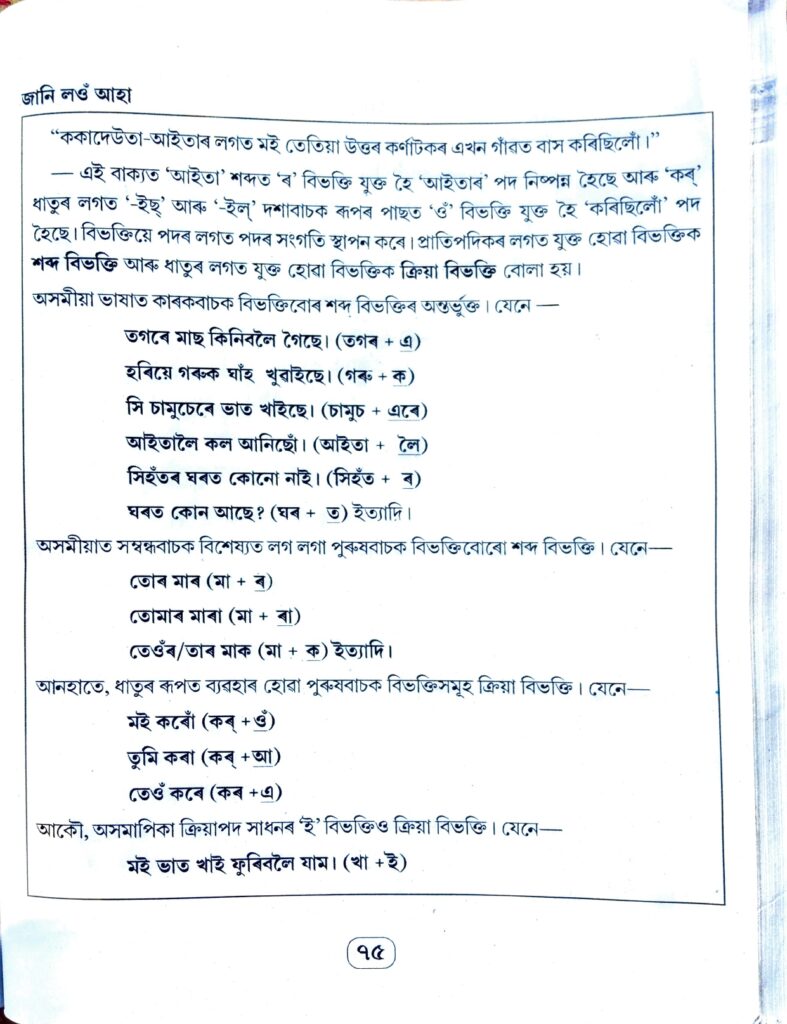 জানি লওঁ আহা
“ককাদেউতা-আইতাৰ লগত মই তেতিয়া উত্তৰ কৰ্ণাটকৰ এখন গাঁৱত বাস কৰিছিলোঁ।”
— এই বাক্যত ‘আইতা’ শব্দত ‘ৰ’ বিভক্তি যুক্ত হৈ ‘আইতাৰ’ পদ নিষ্পন্ন হৈছে আৰু ‘কৰ্’
ধাতুৰ লগত ‘-ইছ্’ আৰু ‘-ইল্’ দশাবাচক ৰূপৰ পাছত ‘ওঁ’ বিভক্তি যুক্ত হৈ ‘কৰিছিলোঁ’ পদ
হৈছে। বিভক্তিয়ে পদৰ লগত পদৰ সংগতি স্থাপন কৰে। প্ৰাতিপদিকৰ লগত যুক্ত হোৱা বিভক্তিক
শব্দ বিভক্তি আৰু ধাতুৰ লগত যুক্ত হোৱা বিভক্তিক ক্ৰিয়া বিভক্তি বোলা হয়।
অসমীয়া ভাষাত কাৰকবাচক বিভক্তিবোৰ শব্দ বিভক্তিৰ অন্তৰ্ভুক্ত। যেনে —
তগৰে মাছ কিনিবলৈ গৈছে। (তগৰ + এ)
হৰিয়ে গৰুক ঘাঁহ খুৱাইছে। (গৰু + ক)
সি চামুচেৰে ভাত খাইছে। (চামুচ + এৰে)
আইতালৈ কল আনিছোঁ। (আইতা + লৈ)
সিহঁতৰ ঘৰত কোনো নাই। (সিহঁত + ৰ)
ঘৰত কোন আছে? (ঘৰ + ত) ইত্যাদি।
অসমীয়াত সম্বন্ধবাচক বিশেষ্যত লগ লগা পুৰুষবাচক বিভক্তিবোৰো শব্দ বিভক্তি। যেনে—
তোৰ মাৰ (মা + ৰ)
তোমাৰ মাৰা (মা + ৰা)
তেওঁৰ/তাৰ মাক (মা + ক) ইত্যাদি।
আনহাতে, ধাতুৰ ৰূপত ব্যৱহাৰ হোৱা পুৰুষবাচক বিভক্তিসমূহ ক্ৰিয়া বিভক্তি। যেনে—
মই কৰোঁ (কৰ্ +ওঁ)
তুমি কৰা (কৰ্ +আ)
তেওঁ কৰে (কৰ +এ)
আকৌ, অসমাপিকা ক্ৰিয়াপদ সাধনৰ ‘ই’ বিভক্তিও ক্ৰিয়া বিভক্তি। যেনে—
মই ভাত খাই ফুৰিবলৈ যাম। (খা +ই)
৭৫